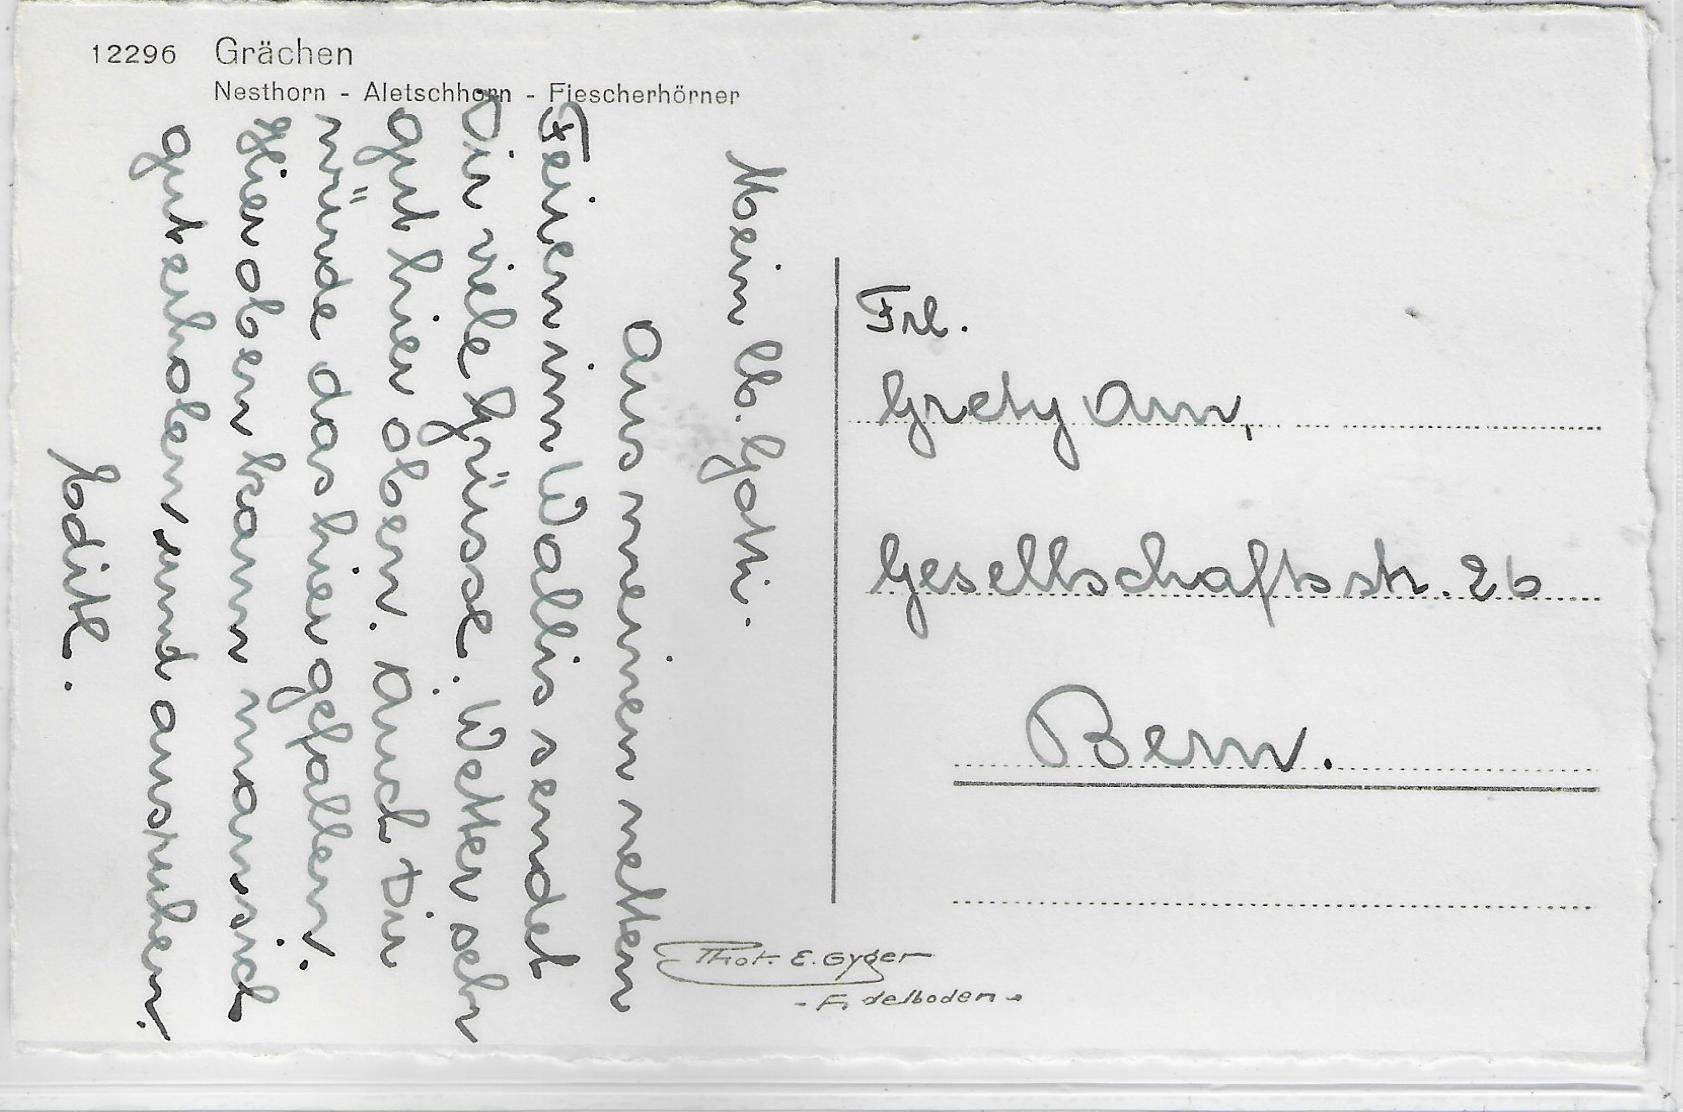 12296 Grächen
Nesthorn - Aletschhorn - Fiescherhörner
Mein lb. Gotti.
Aus meinen netten
Ferien im Wallis sendet
Dir viele Grüsse. Wetter sehr
gut hier oben. Auch Dir
würde das hier gefallen.
Hier oben kann man sich
gut erholen und ausruhen.
Edith.
Frl.
Grety Amn,
Gesellschaftsstr. 26
Bern.
Phot. E. Gyger
- Adelboden -